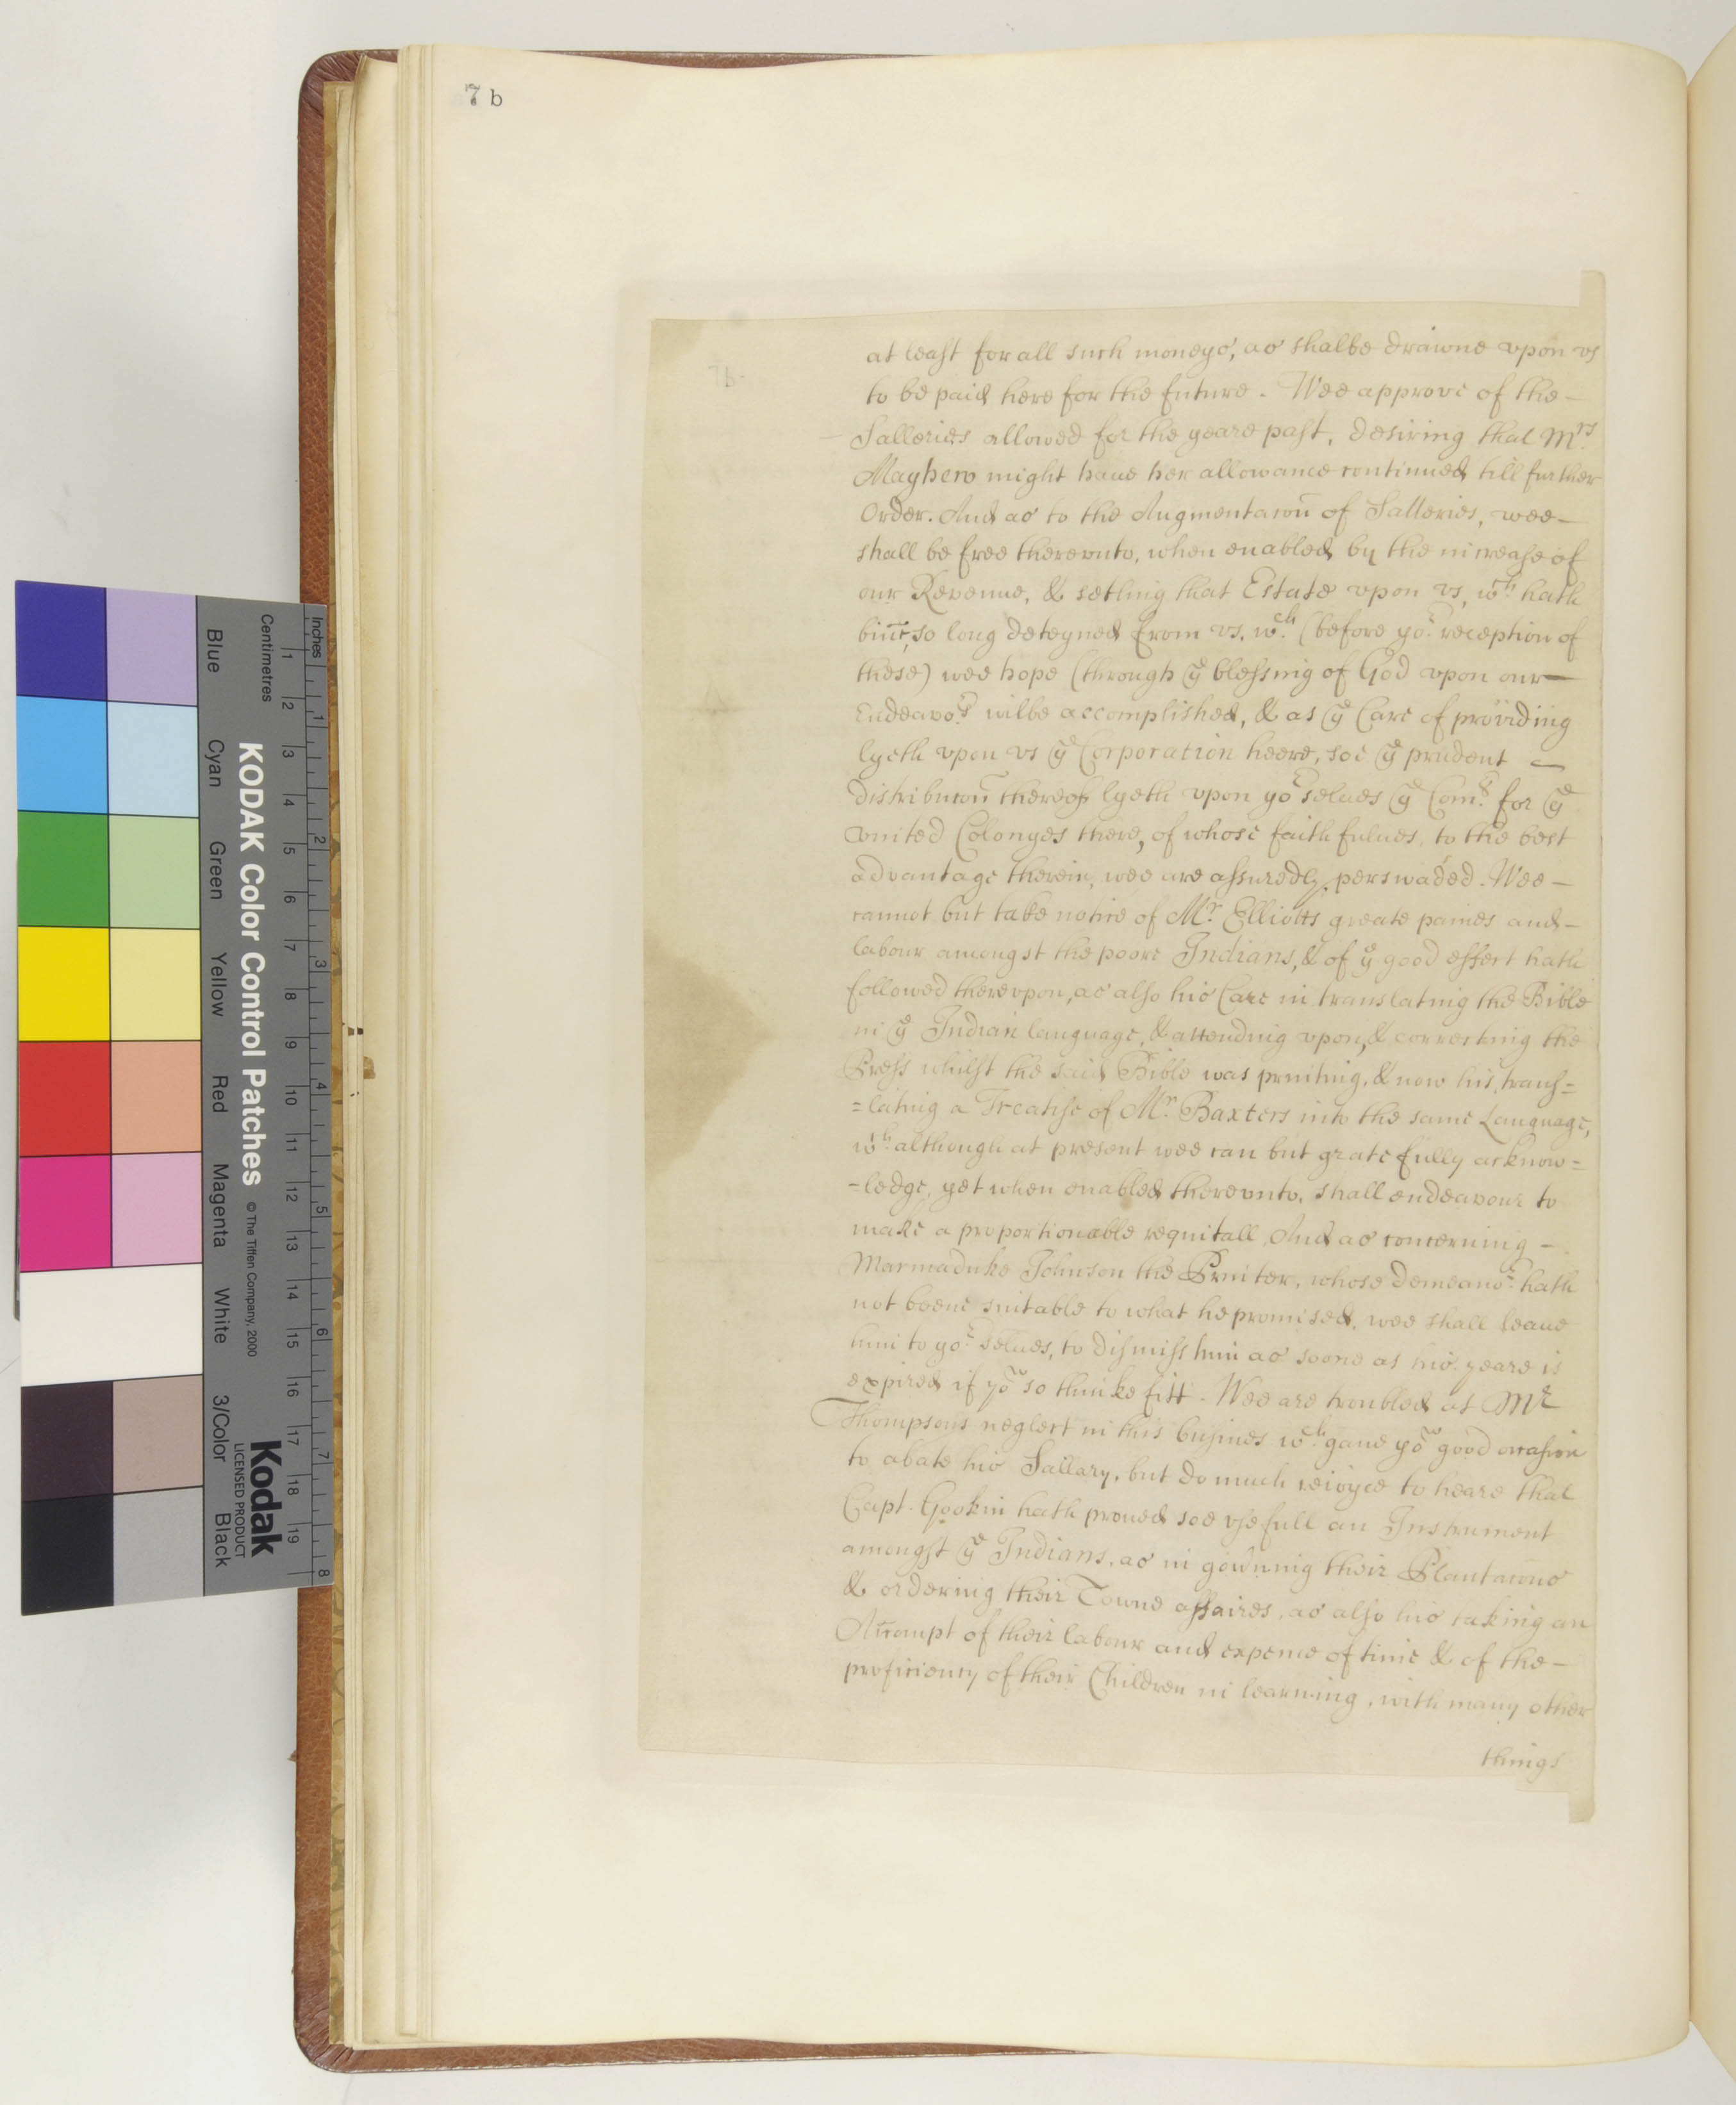 7 b
7b.
at least for all such moneys, as shalbe drawne vpon vs
to be paid here for the future. Wee approve of the –
Salleries allowed for the yeare past, desiring that Mrs.
Mayhew might haue her allowance continued till further
Order. And as to the Augmentacon̄ of Salleries, wee –
shall be free therevnto, when enabled by the increase of
our Revenue, & setling that Estate vpon vs, wch. hath
bine, so long deteyned from vs, wch. (before yor. reception of
these) wee hope (through ye blessing of God vpon our –
Endeavors. wilbe accomplished, & as ye Care of providing
lyeth vpon vs ye Corporation heere, soe ye prudent –
distribucon̄ thereof lyeth vpon yor selues ye Comrs. for ye
vnited Colonyes there, of whose faithfulnes, to the best
advantage therein, wee are assuredly perswaded. Wee –
cannot but take notice of Mr. Elliotts greate paines and –
labour amongst the poore Indians, & of ye good effect hath
followed therevpon, as also his Care in translating the Bible
in ye Indian language, & attending vpon, & correcting the
Press whilst the said Bible was printing, & now his trans=
=lating a Treatise of Mr. Baxters into the same Language,
wch. although at present wee can but gratefully acknow=
=ledge, yet when enabled therevnto, shall endeavour to
make a proportionable requitall, And as concerning –
Marmaduke Johnson the Printer, whose demeanor. hath
not beene suitable to what he promised, wee shall leaue
him to yor. selues, to dismiss him as soone as his yeare is
expired if you so thinke fitt. Wee are troubled at Mr
Thompsons neglect in this busines wch. gaue you good occasion
to abate his Sallary, but do much reioyce to heare that
Capt. Gookin hath proued soe vsefull an Instrument
amongst ye Indians, as in gou'ning their Plantacons
& ordering their Towne affaires, as also his taking an
Accompt of their labour and expence of time & of the –
proficiency of their Children in learning, with many other
things
Inches
Centimetres
1 2 3 4 5 6 7 8
1 2 3 4 5 6 7 8 9 10 11 12 13 14 15 16 17 18 19
KODAK Color Control Patches
© The Tiffen Company, 2000
Kodak
LICENSED PRODUCT
Blue
Cyan
Green
Yellow
Red
Magenta
White
3/Color
Black